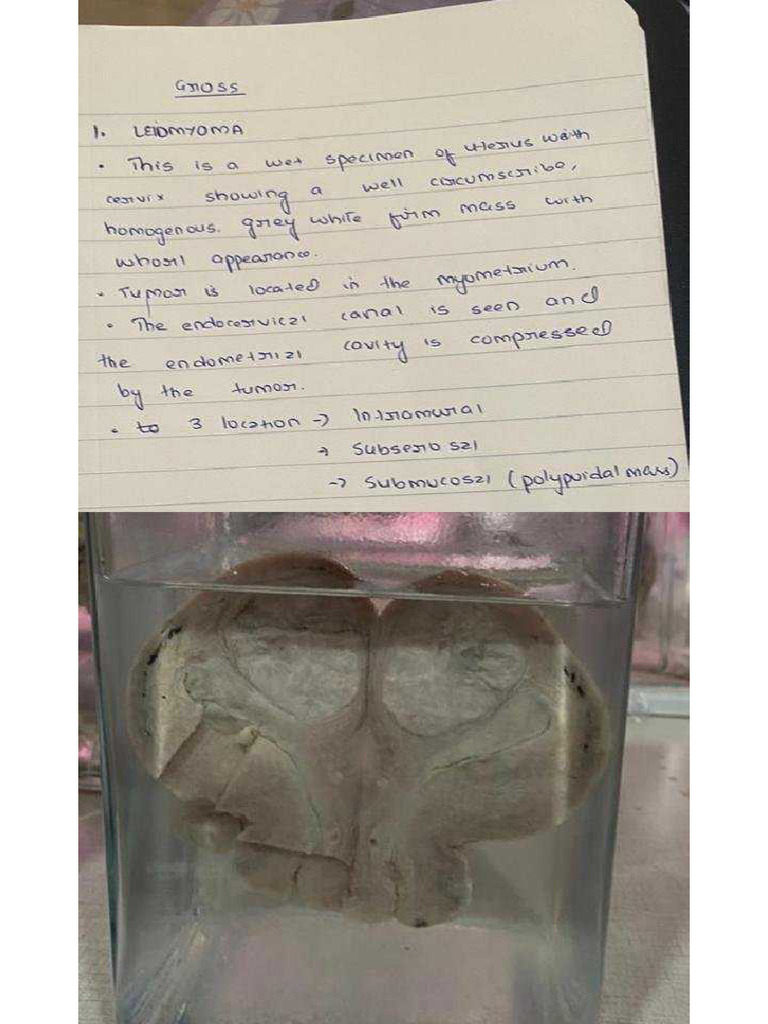 GROSS
1. LEIOMYOMA
• This is a wet specimen of uterus with
cervix showing a well circumscribe,
homogenous. grey white firm mass with
whorl appearance.
• Tumor is located in the myometrium.
• The endocervical canal is seen and
the endometrial cavity is compressed
by the tumor.
• to 3 location → Intramural
→ Subserosal
→ Submucosal (polypoidal mass)